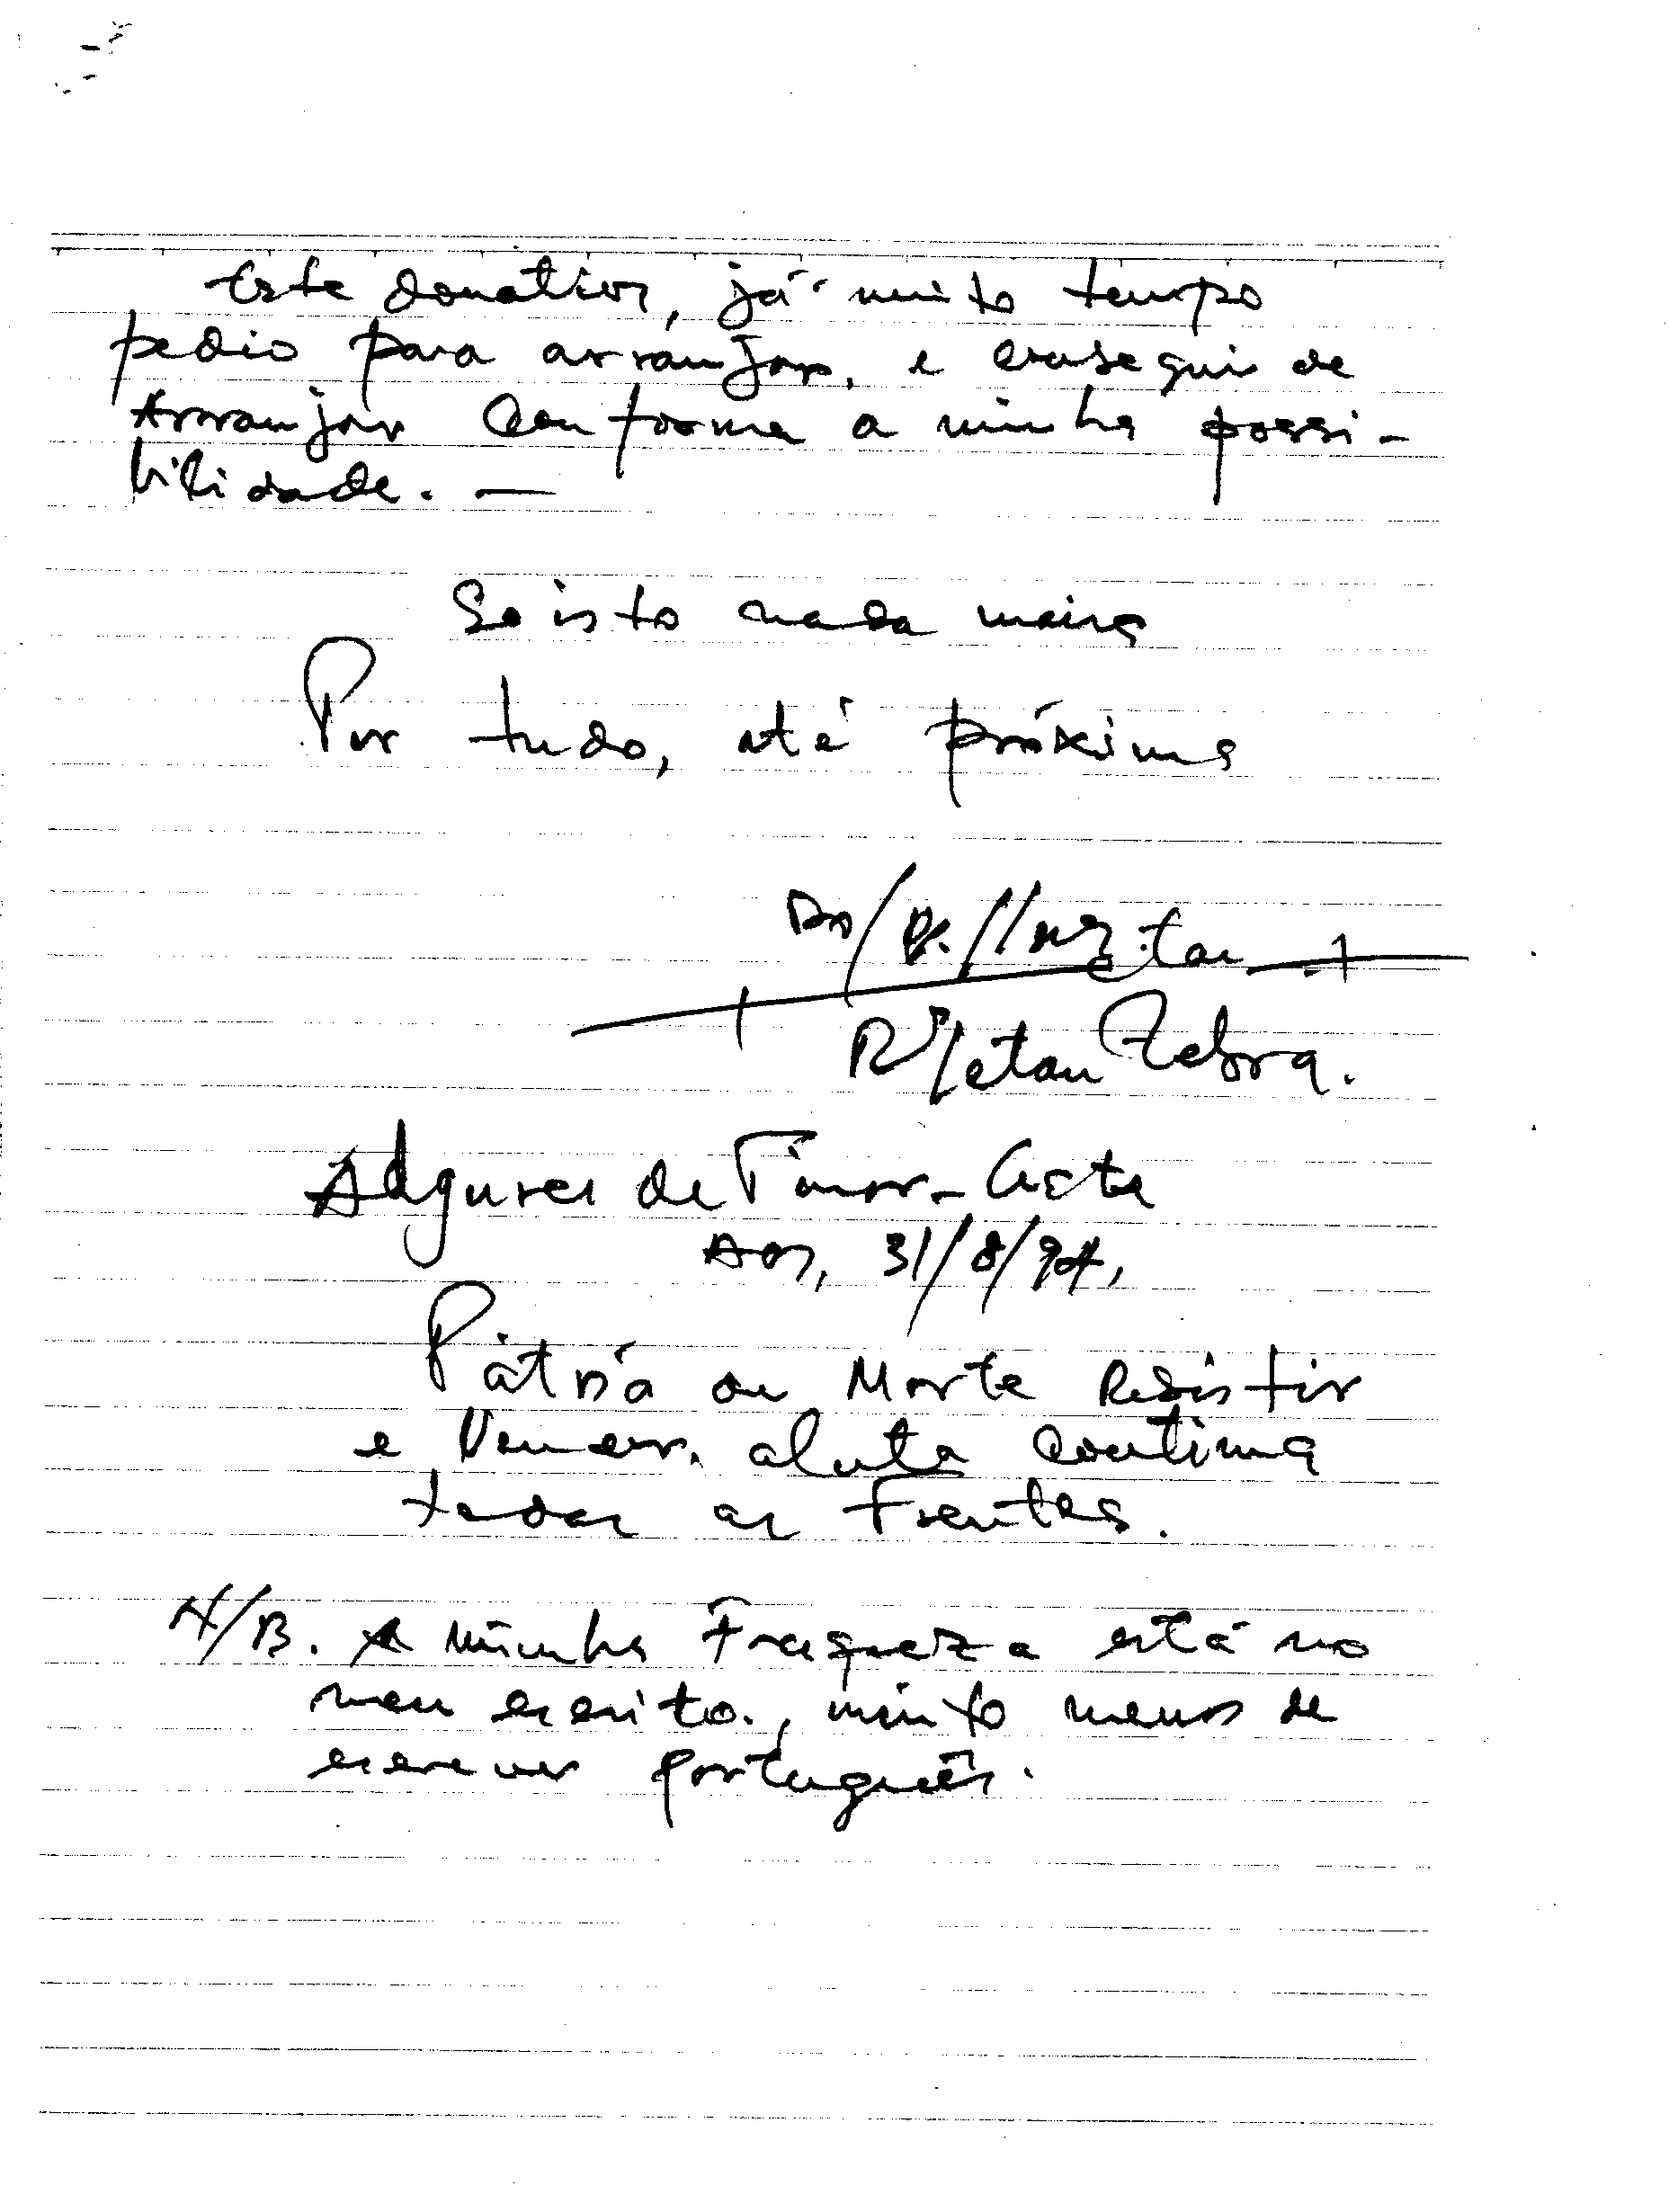 Este donativo, já muito tempo
pedio para arranjar, e consegui de
Arranjar Conforme a minha possi-
bilidade. —
So isto nada mais
Por tudo, até próxima
Do/
Zebra.
Algures de Timor-Leste
Aos, 31/8/94,
Pátria ou Morte Resistir
e Vencer. aluta Continua
todas as Frentes.
N/B. A minha Fraqueza está no
meu escrito., muito menos de
escrever português.